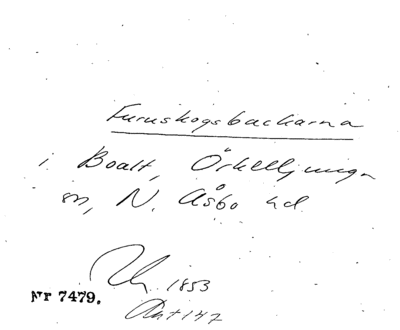 Furuskogsbackarna
i Boalt, Örkelljunga
sn, N. Åsbo hd
1853
Nr 7479.
147